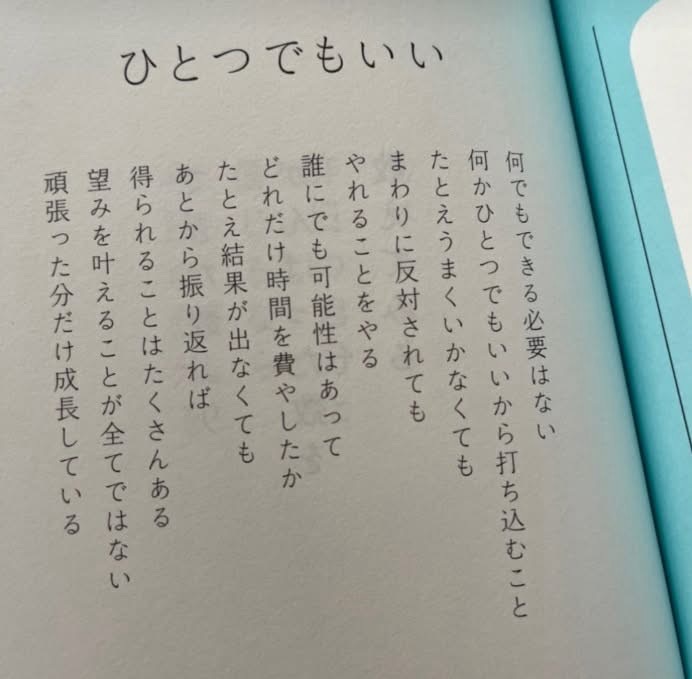 ひとつでもいい
何でもできる必要はない
何かひとつでもいいから打ち込むこと
たとえうまくいかなくても
まわりに反対されても
やれることをやる
誰にでも可能性はあって
どれだけ時間を費やしたか
たとえ結果が出なくても
あとから振り返れば
得られることはたくさんある
望みを叶えることが全てではない
頑張った分だけ成長している